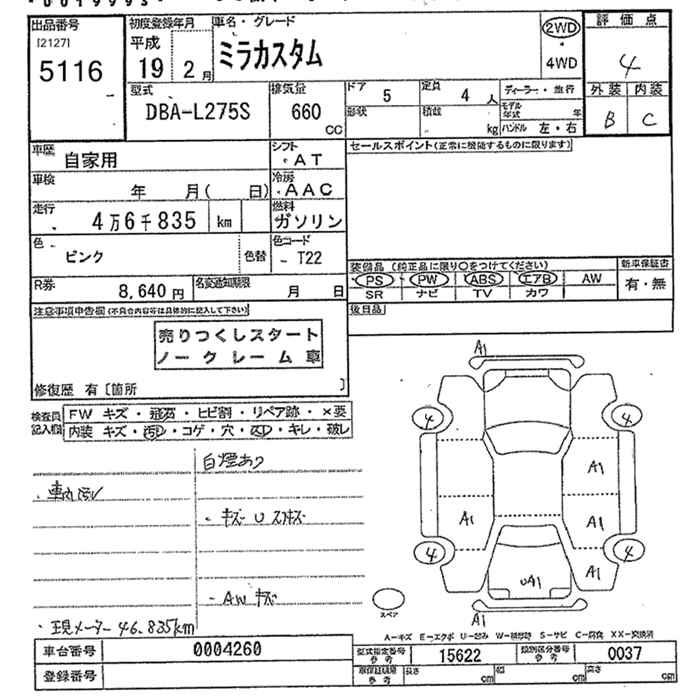 出品番号
[2127]
5116
初度登録年月
平成
19 2月
車名・グレード
ミラカスタム
2WD
4WD
評価点
4
外装 内装
B C
型式
DBA-L275S
排気量
660
CC
ドア
5
定員
4 人
形状
積載
kg
ディーラー・並行
モデル年式 年
ハンドル 左・右
車歴
自家用
シフト
AT
セールスポイント(正常に機能するものに限ります)
車検
年 月( 日)
冷房
AAC
走行
4万6千835 km
燃料
ガソリン
色
ピンク
色替
色コード
T22
装備品 (純正品に限り○をつけてください)
新車保証書
PS PW ABS エアB AW
有・無
SR ナビ TV カワ
R券
8,640円
名変通知期限
月 日
後日品
注意事項申告欄(不具合内容等は具体的に記入して下さい)
売りつくしスタート
ノークレーム車
修復歴 有[箇所 ]
検査員記入欄
FW キズ・飛石・ヒビ割・リペア跡・×要
内装 キズ・汚レ・コゲ・穴・スレ・キレ・破レ
白煙あり
・車内汚レ
・キズ U スリキズ
・AWキズ
・現メーター 46.835km
A1
4
4
A1
A1
A1
A1
4
4
UA1
A1
A1
スペア
A-キズ E-エクボ U-凹み W-補修跡 S-サビ C-腐食 XX-交換済
車台番号
0004260
型式指定番号
参考
15622
類別区分番号
参考
0037
登録番号
車体証明書
参考
長さ cm
幅 cm
高さ cm